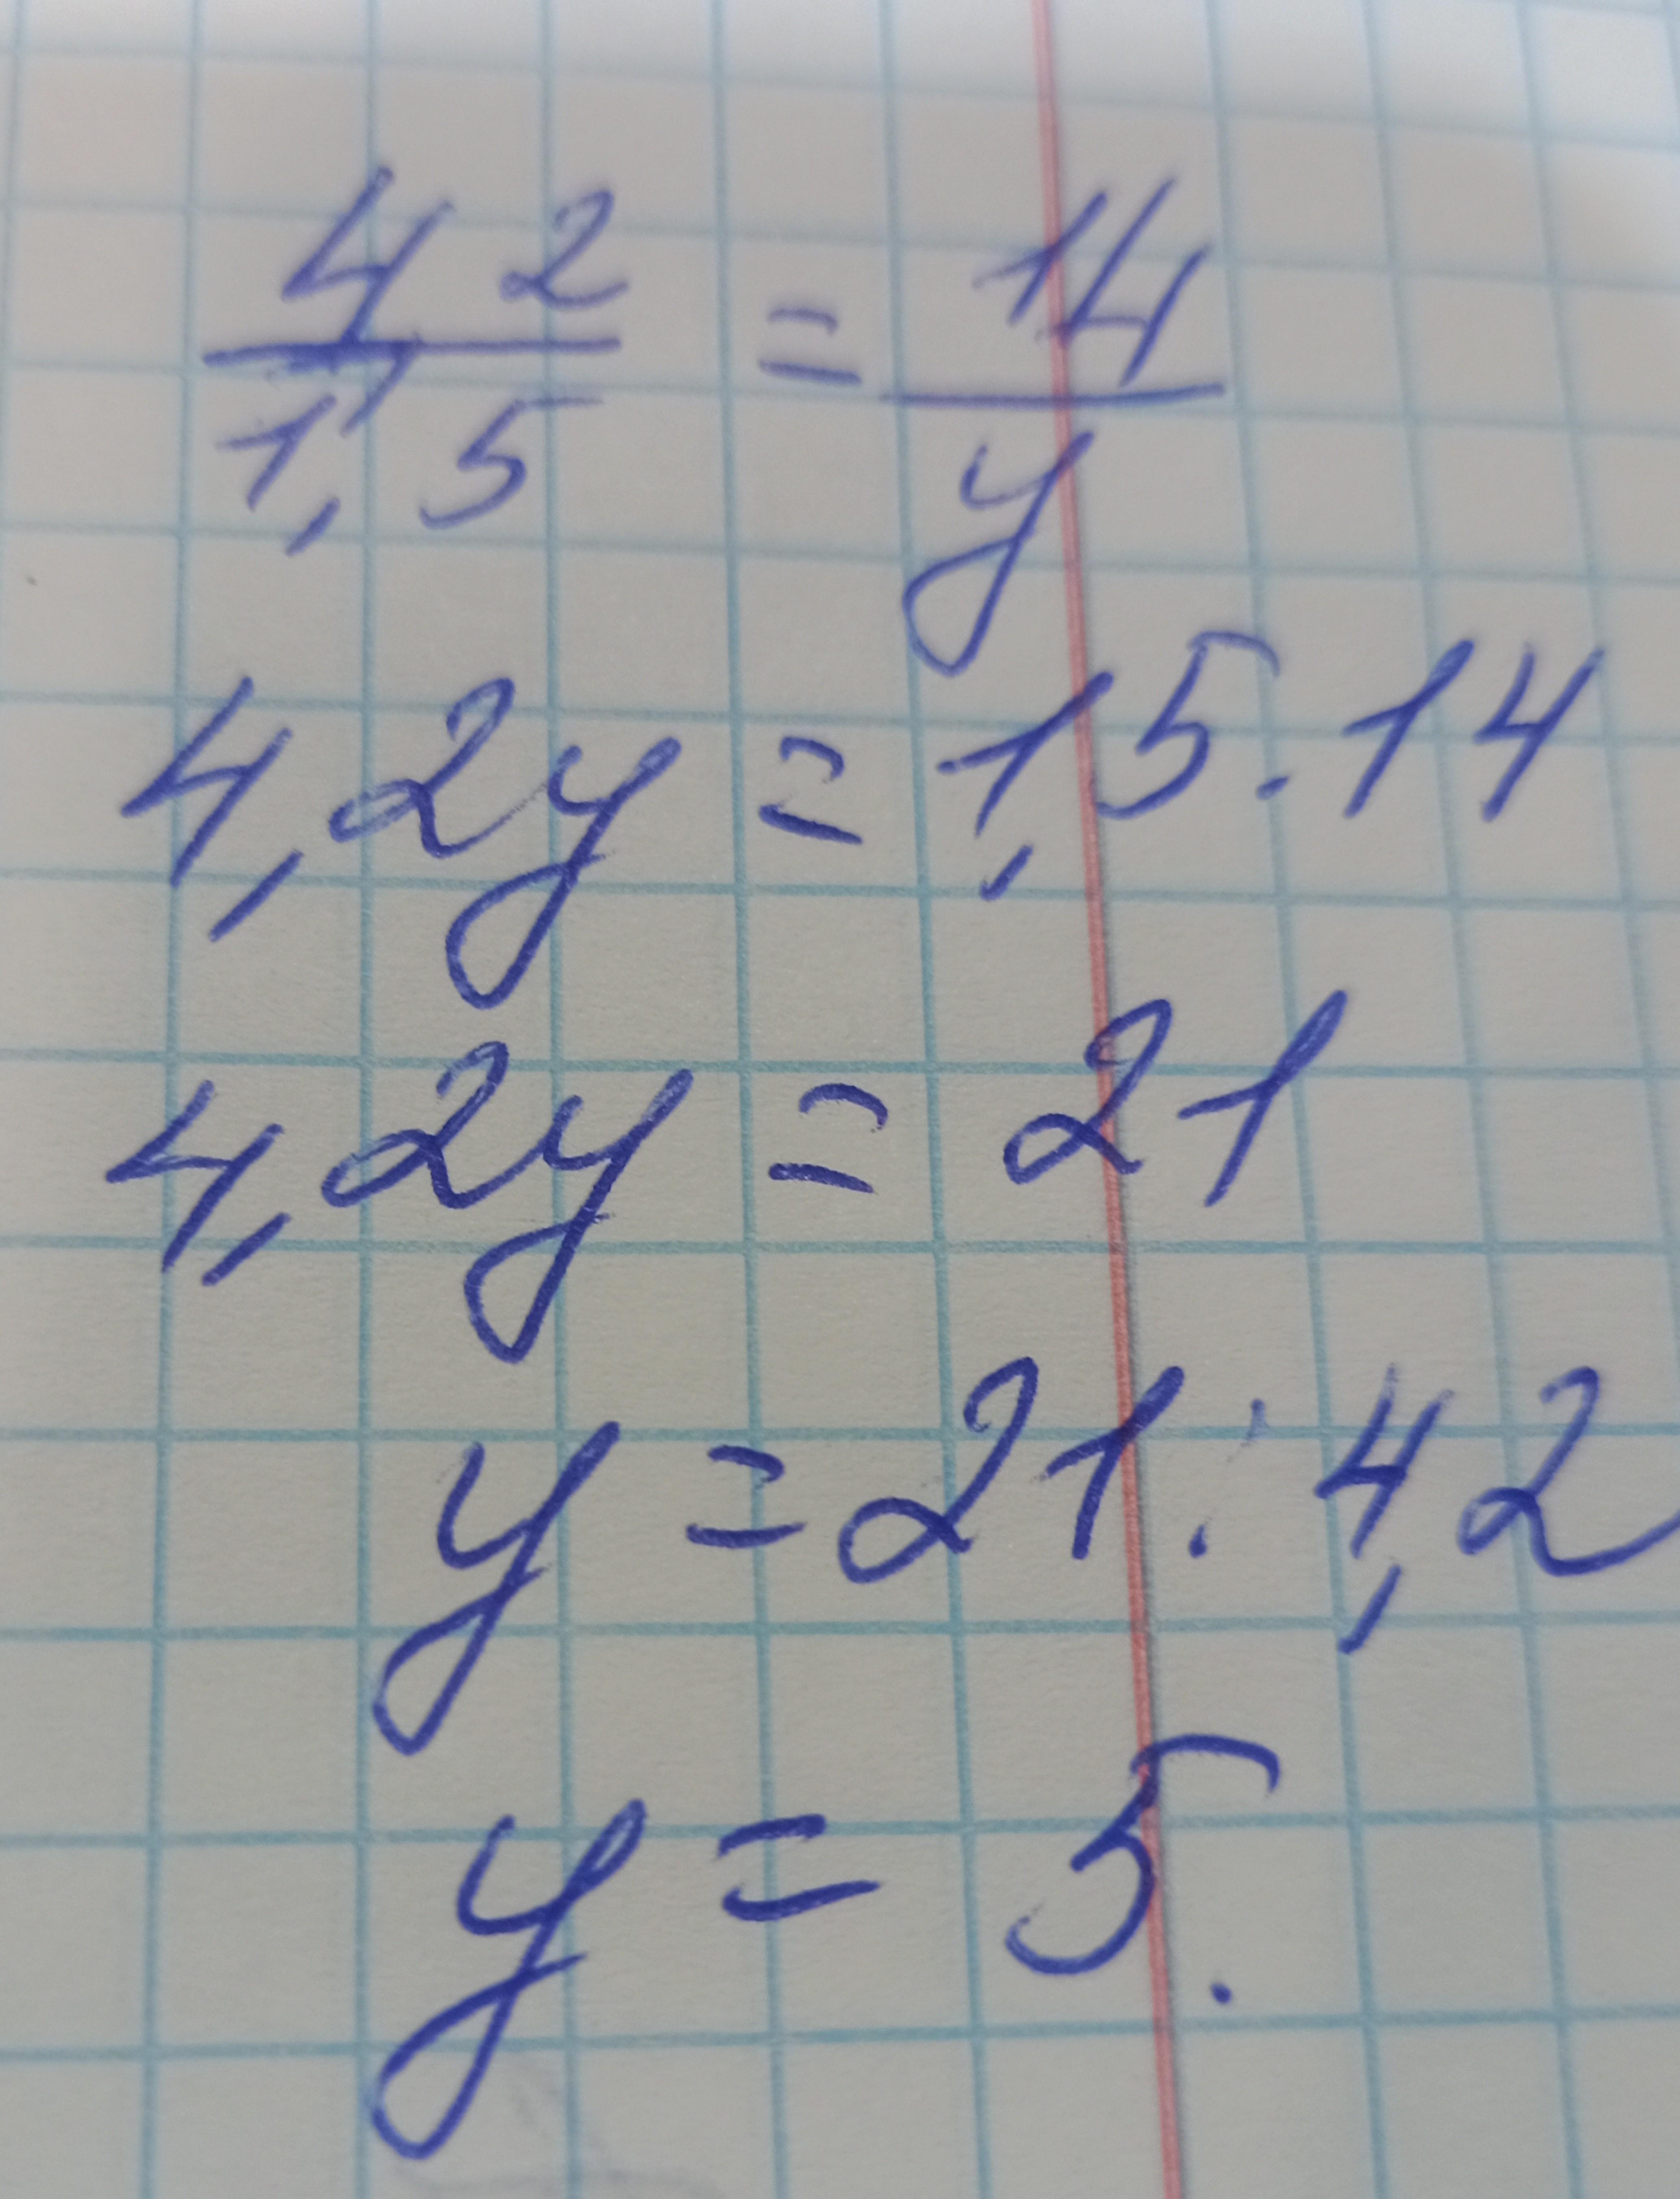 4,2/1,5 = 14/y
4,2y = 1,5 · 14
4,2y = 21
y = 21 : 4,2
y = 5.